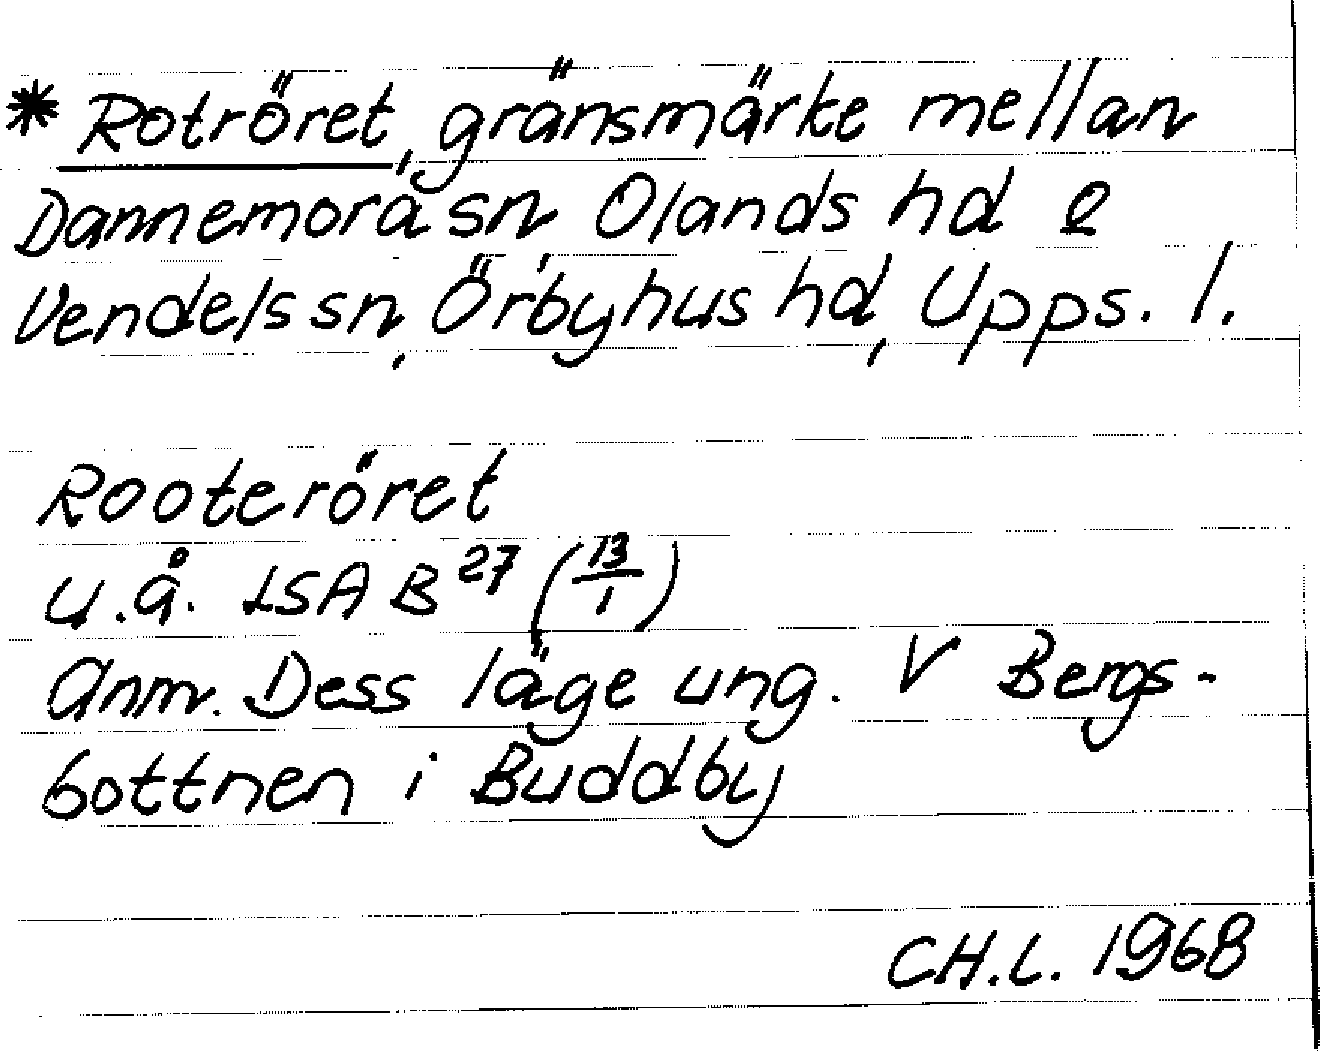 * Rotröret, gränsmärke mellan
Dannemora sn Olands hd o
Vendels sn, Örbyhus hd, Upps. l.
Rooteröret
u.å. LSA B 27 (13/1)
Anm. Dess läge ung. V Bergs-
bottnen i Buddby
CH.L. 1968